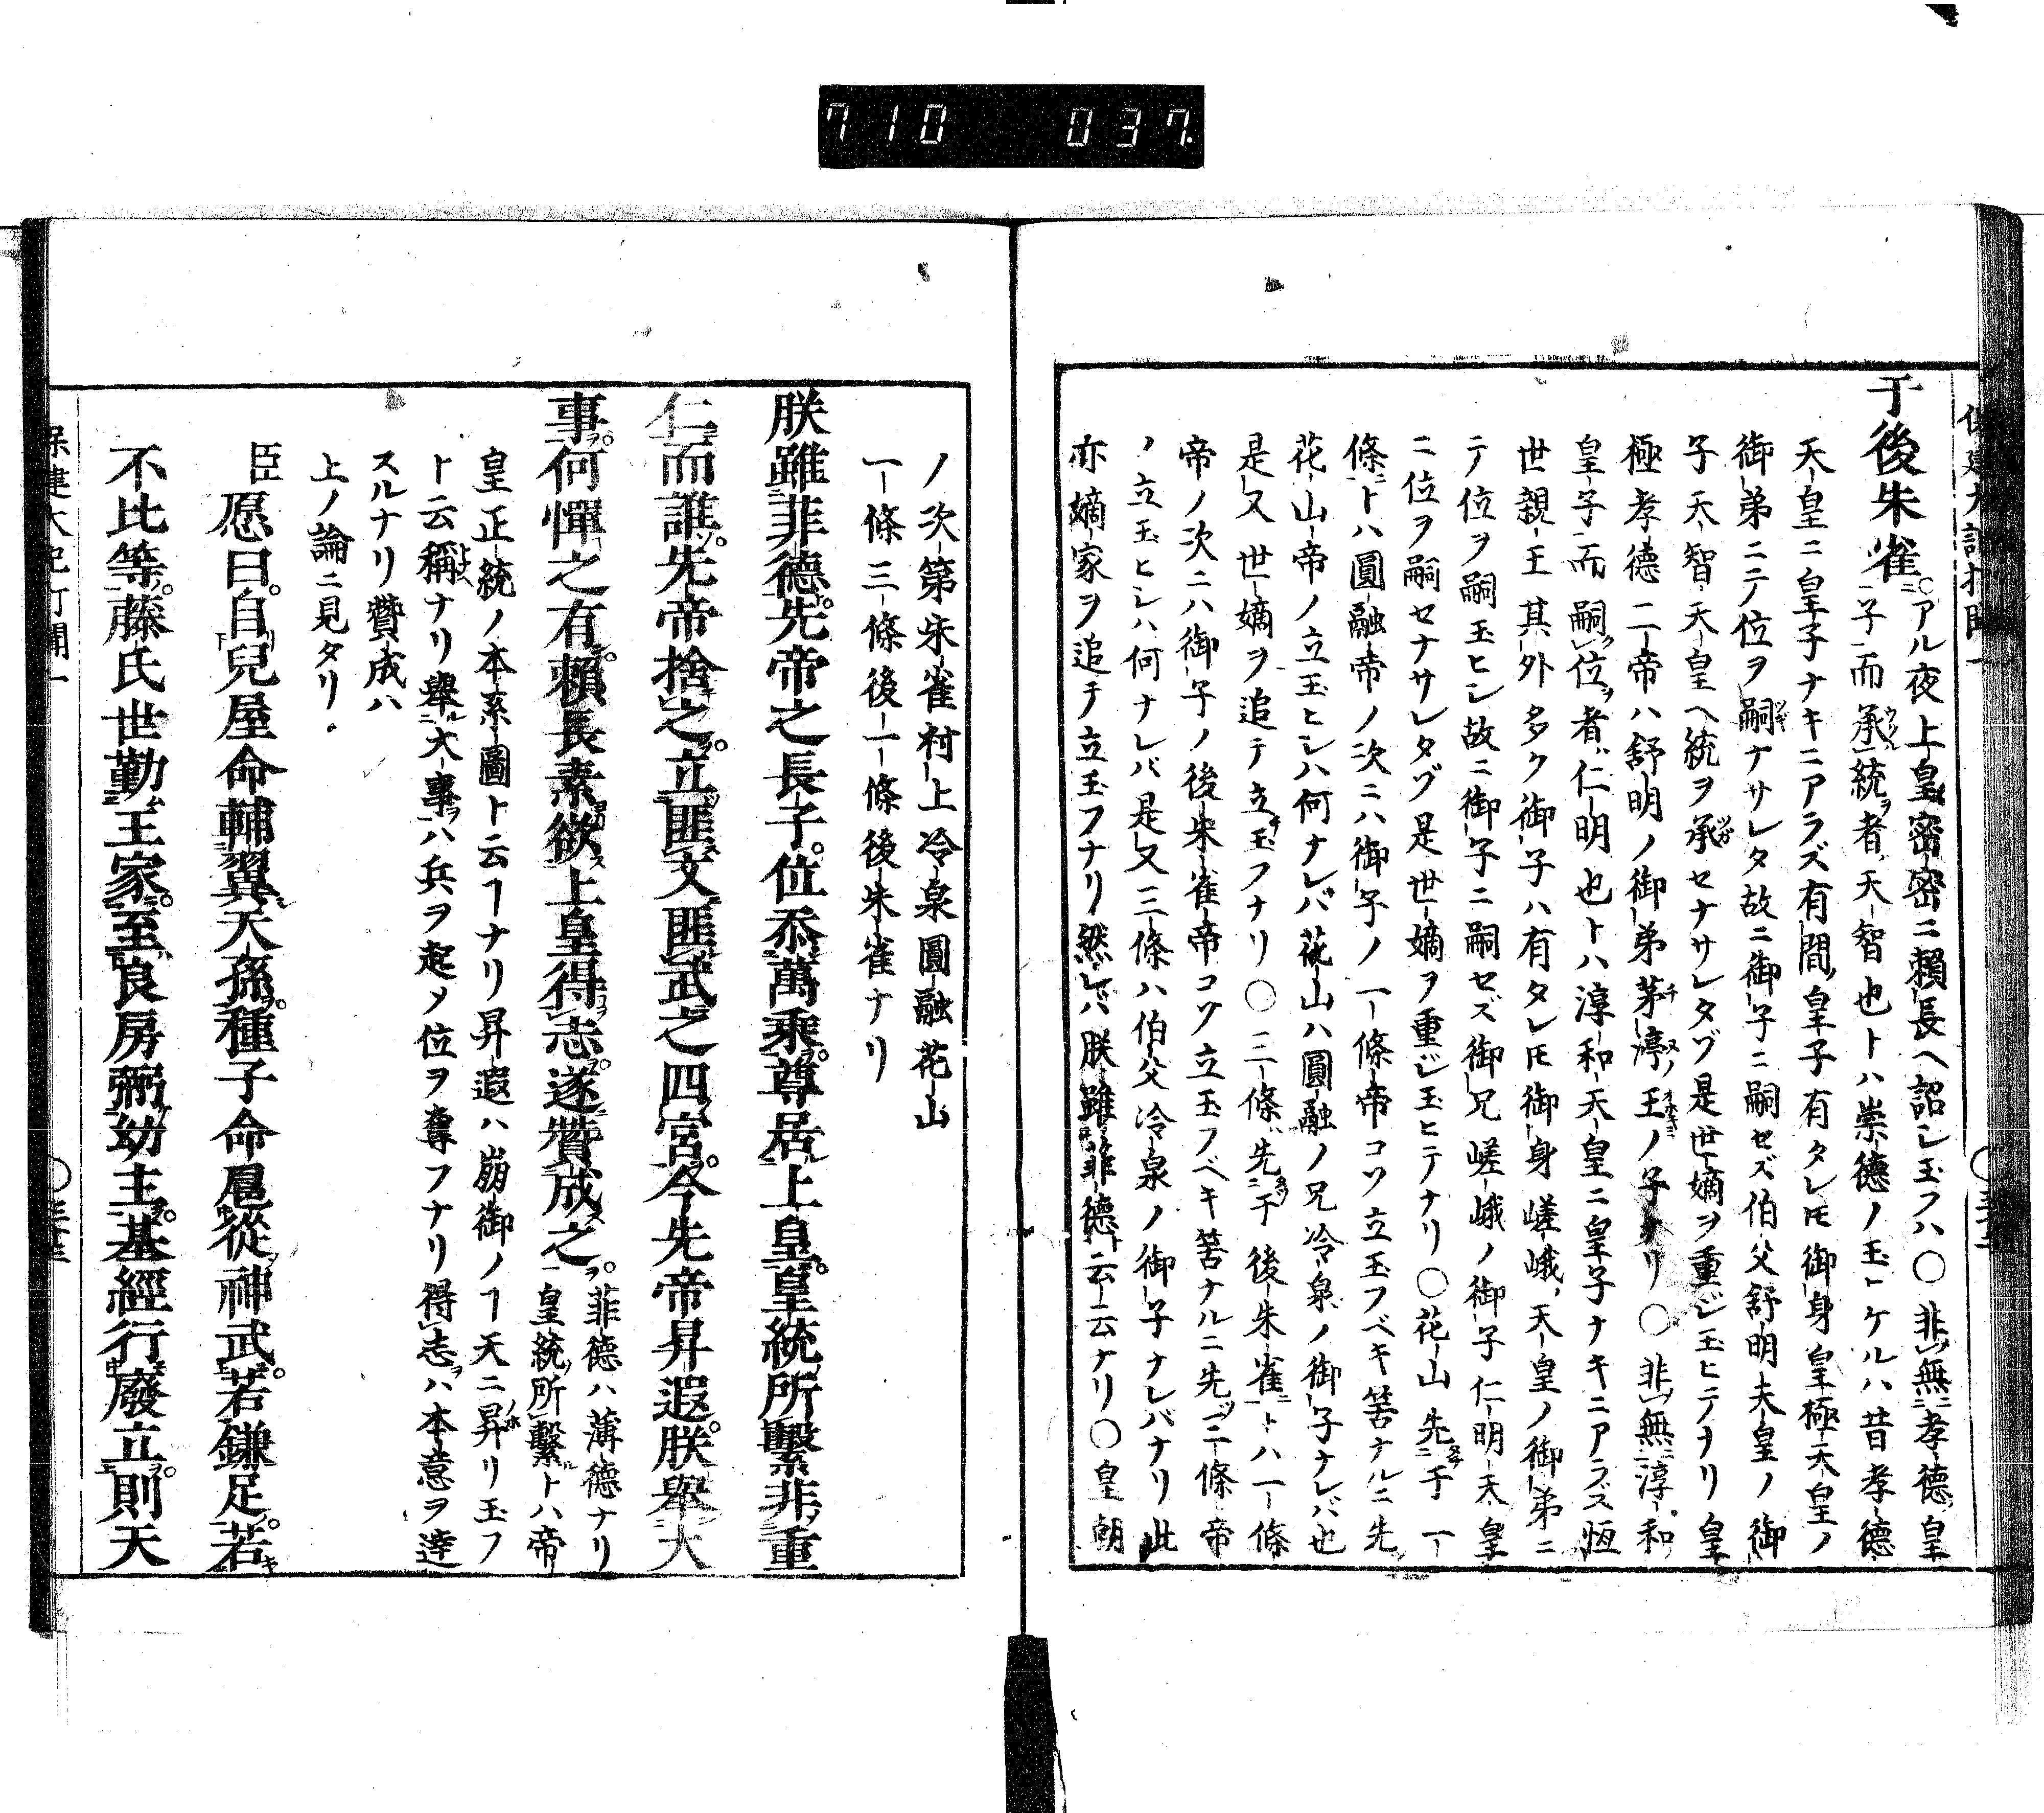 710 037
于後朱雀
アル夜上皇密密ニ賴長ヘ詔シ玉フハ〇非無孝德皇
子而承統者天智也トハ崇德ノ玉ヒケルハ昔孝德
天皇ニ皇子ナキニアラズ有間皇子有タレ𪜈御身皇極天皇ノ
御弟ニテ位ヲ嗣ナサレタ故ニ御子ニ嗣セズ伯父舒明天皇ノ御
子天智天皇ヘ統ヲ承セナサレタゾ是世嫡ヲ重ジ玉ヒテナリ皇
極孝德二帝ハ舒明ノ御弟茅渟王ノ子ナリ〇非無淳和
皇子而嗣位者仁明也トハ淳和天皇ニ皇子ナキニアラズ恆
世親王其外多ク御子ハ有タレ𪜈御身嵯峨天皇ノ御弟ニ
テ位ヲ嗣玉ヒシ故ニ御子ニ嗣セズ御兄嵯峨ノ御子仁明天皇
ニ位ヲ嗣セナサレタゾ是世嫡ヲ重ジ玉ヒテナリ〇花山先于一
條トハ圓融帝ノ次ニハ御子ノ一條帝コソ立玉フベキ筈ナルニ先
花山帝ノ立玉ヒシハ何ナレバ花山ハ圓融ノ兄冷泉ノ御子ナレバ也
是又世嫡ヲ追テ立玉フナリ〇三條先于後朱雀トハ一條
帝ノ次ニハ御子ノ後朱雀帝コソ立玉フベキ筈ナルニ先三條帝
ノ立玉ヒシハ何ナレバ是又三條ハ伯父冷泉ノ御子ナレバナリ此
亦嫡家ヲ追テ立玉フナリ然レバ朕雖菲德云云ナリ〇皇朝
ノ次第朱雀村上冷泉圓融花山
一條三條後一條後朱雀ナリ
朕雖菲德先帝之長子位忝萬乘尊居上皇皇統所繫非重
仁而誰先帝捨之立匪文匪武之四宮今先帝昇遐朕舉大
事何憚之有賴長素欲上皇得志遂贊成之
菲德ハ薄德ナリ
皇統所繫トハ帝
皇正統ノ本系圖ト云ヿナリ昇遐ハ崩御ノヿ天ニ昇リ玉フ
ト云稱ナリ舉大事ハ兵ヲ起メ位ヲ奪フナリ得志ハ本意ヲ達
スルナリ贊成ハ
上ノ論ニ見タリ
臣愿曰自兒屋命輔翼天孫種子命扈從神武若鎌足若
不比等藤氏世勤王家至良房弼幼主基經行廢立則天